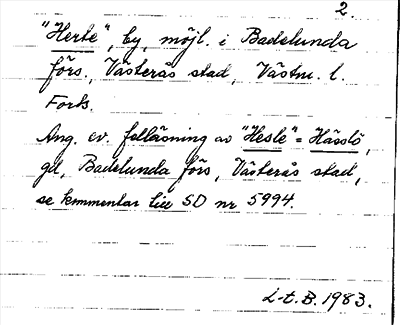 2.
"Herte", by, möjl. i Badelunda
förs., Västerås stad, Västm. l.
Forts.
Ang. ev. felläsning av "Hesle" = Hässlö,
gd, Badelunda förs, Västerås stad,
se kommentar till SD nr 5994.
L-t. B. 1983.